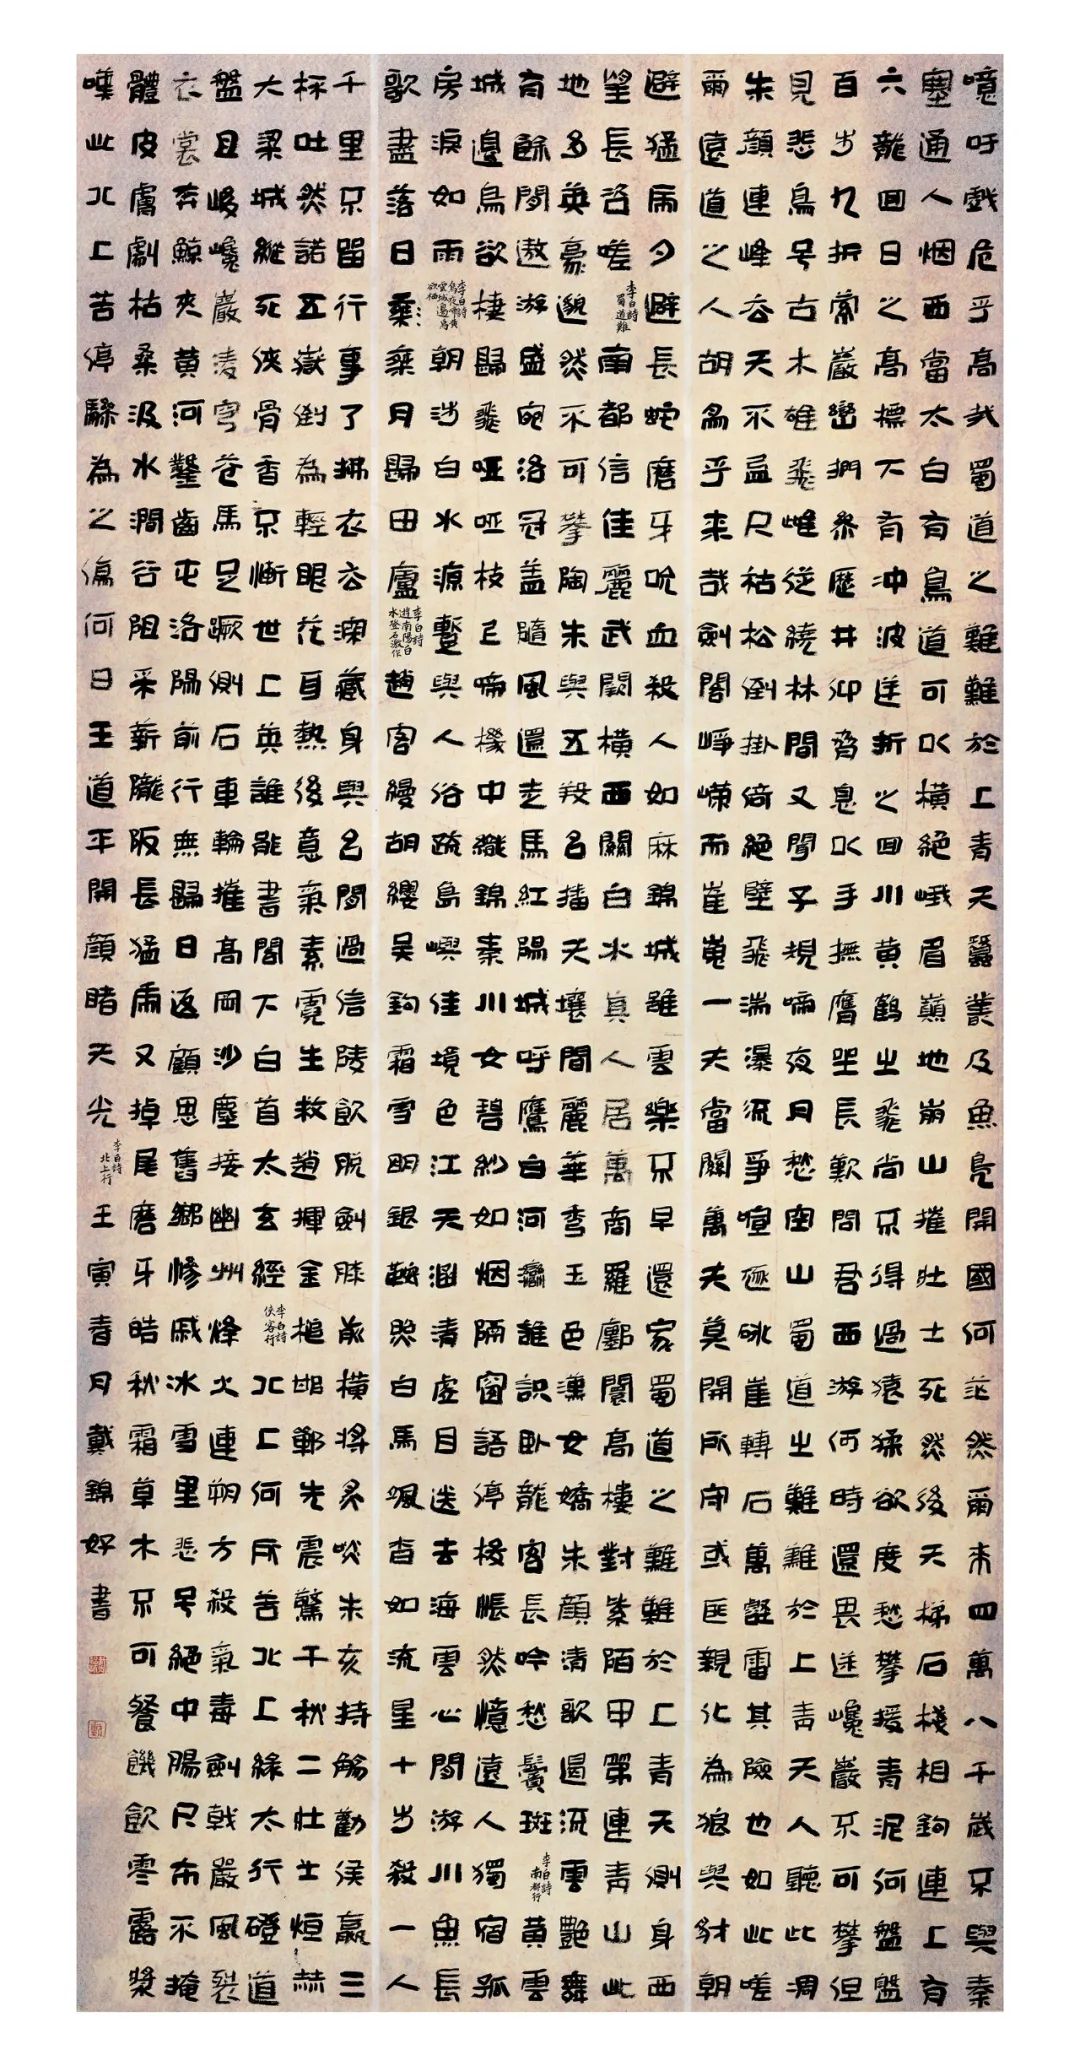 噫吁戲危乎高哉蜀道之難難於上青天蠶叢及魚鳧開國何茫然爾來四萬八千歲不與秦
塞通人烟西當太白有鳥道可以橫絕峨眉巔地崩山摧壯士死然後天梯石棧相鉤連上有
六龍回日之高標下有冲波逆折之回川黃鶴之飛尚不得過猿猱欲度愁攀援青泥何盤盤
百步九折縈巖巒捫參歷井仰脅息以手撫膺坐長歎問君西游何時還畏途巉巖不可攀但
見悲鳥号古木雄飛雌從繞林間又聞子規啼夜月愁空山蜀道之難難於上青天人聽此凋
朱顏連峰去天不盈尺枯松倒掛倚絕壁飛湍瀑流爭喧豗砯崖轉石萬壑雷其險也如此嗟
爾遠道之人胡為乎來哉劍閣崢嶸而崔嵬一夫當關萬夫莫開所守或匪親化為狼與豺朝
避猛虎夕避長蛇磨牙吮血殺人如麻錦城雖雲樂不早還家蜀道之難難於上青天側身西
望長咨嗟 李白詩蜀道難 南都信佳麗武闕橫西關白水真人居萬商羅鄽闤高樓對紫陌甲第連青山此
地多英豪邈然不可攀陶朱與五羖名播天壤間麗華秀玉色漢女嬌朱顏清歌遏流雲艷舞
有餘閒遨游盛宛洛冠蓋隨風還走馬紅陽城呼鷹白河灣誰識臥龍客長吟愁鬢斑 李白詩南都行 黃雲
城邊烏欲棲歸飛啞啞枝上啼機中織錦秦川女碧紗如烟隔窗語停梭悵然憶遠人獨宿孤
房淚如雨 李白詩烏夜啼黃雲城邊烏欲栖 朝涉白水源暫與人俗疏島嶼佳境色江天涵清虛目送去海雲心閒游川魚長
歌盡落日乘乘月歸田廬 李白詩遊南陽白水登石激作 趙客縵胡纓吳鉤霜雪明銀鞍照白馬颯沓如流星十步殺一人
千里不留行事了拂衣去深藏身與名閒過信陵飲脫劍膝前橫將炙啖朱亥持觴勸侯嬴三
杯吐然諾五嶽倒為輕眼花耳熱後意氣素霓生救趙揮金槌邯鄲先震驚千秋二壯士烜赫
大梁城縱死俠骨香不慚世上英誰能書閣下白首太玄經 李白詩俠客行 北上何所苦北上緣太行磴道
盤且峻巉巖淩穹蒼馬足蹶側石車輪摧高岡沙塵接幽州烽火連朔方殺氣毒劍戟嚴風裂
衣裳奔鯨夾黃河鑿齒屯洛陽前行無歸日返顧思舊鄉慘戚冰雪里悲号絕中腸尺布不掩
體皮膚劇枯桑汲水澗谷阻采薪隴阪長猛虎又掉尾磨牙皓秋霜草木不可餐饑飲零露漿
嘆此北上苦停驂為之傷何日王道平開顏睹天光 李白詩北上行 壬寅春月戴錦好書